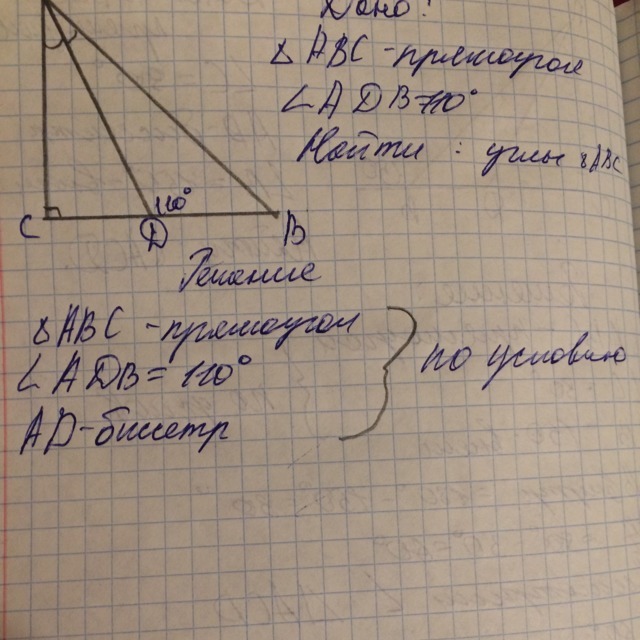 Дано:
△ABC - прямоугол
∠ADB=110°
Найти: углы △ABC
110°
C
D
B
Решение
△ABC - прямоугол
∠ADB = 110°
AD - биссетр
по условию